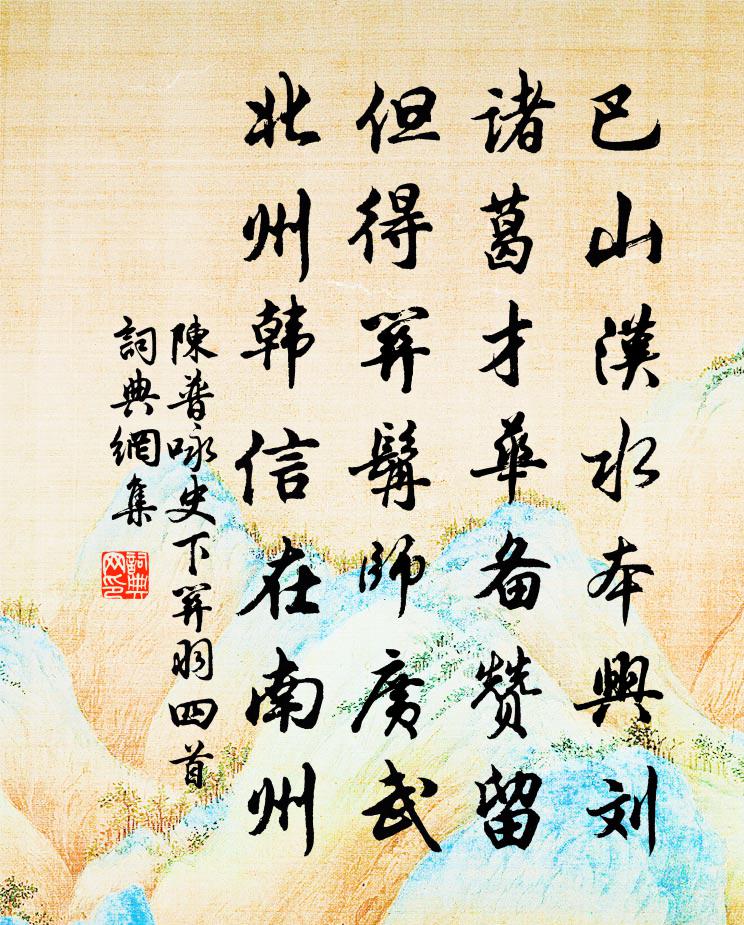 巴山漢水本興刘
诸葛才華备赞留
但得羿髯師廣武
北州韩信在南州
陳普咏史下羿羽四首
詞典網集
詞典网印